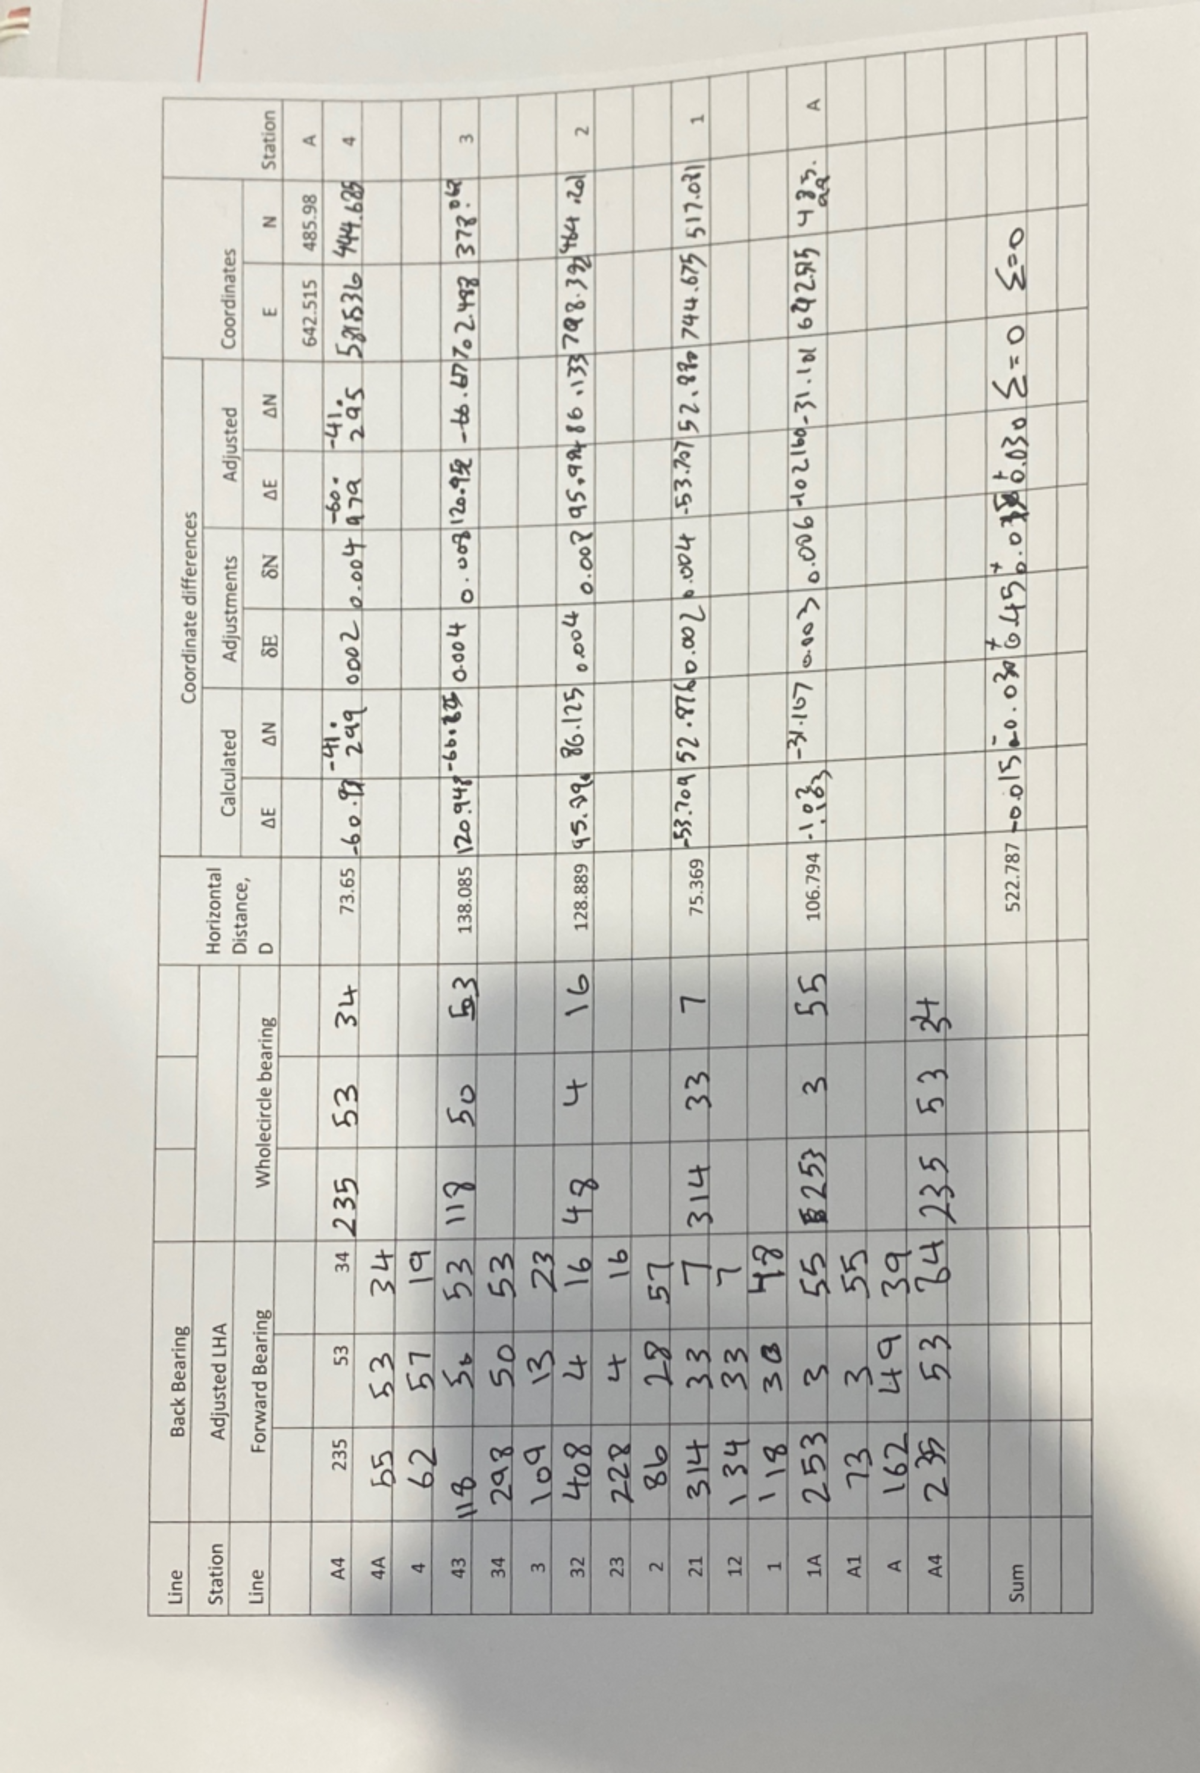 Line Back Bearing Coordinate differences Coordinates
Station Adjusted LHA Wholecircle bearing Horizontal Distance, D Calculated Adjustments Adjusted Station
Line Forward Bearing ΔE ΔN δE δN ΔE ΔN E N
642.515 485.98 A
A4 235 53 34 235 53 34 73.65 -41.299 0002 0.004 -60.979 -41.295 444.685 4
4A 55 53 34
4 62 57 19
43 118 50 53 118 50 53 138.085 120.948 0.004 0.008 -66.677 702.488 3
34 298 50 53
3 109 13 23
32 408 4 16 48 4 16 128.889 86.125 0.004 0.008 86.133 464.201 2
23 228 4 16
2 86 28 57
21 314 33 7 314 33 7 75.369 -53.709 52.876 0.002 0.004 -53.707 52.880 744.675 517.081 1
12 134 33 7
1 118 30 48
1A 253 3 55 253 3 55 106.794 -31.107 0.003 0.006 -31.101 A
A1 73 3 55
A 162 49 39
A4 235 53 34 235 53 34
Sum 522.787 -0.015 0.030 Σ=0 Σ=0